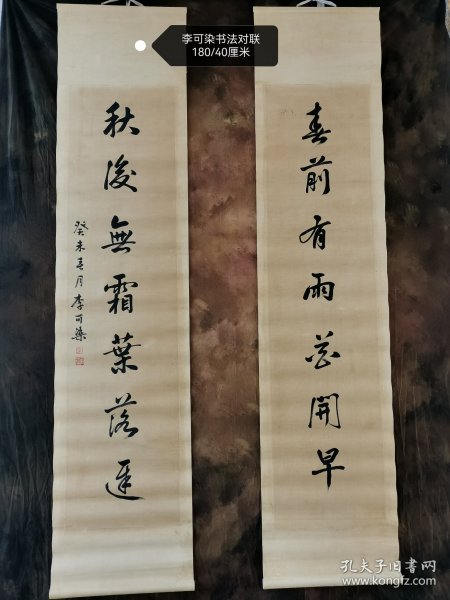 李可染书法对联
180/40厘米
春前有雨花開早
秋後無霜葉落遲
癸未春月李可染
孔夫子旧书网
www.kongfz.com